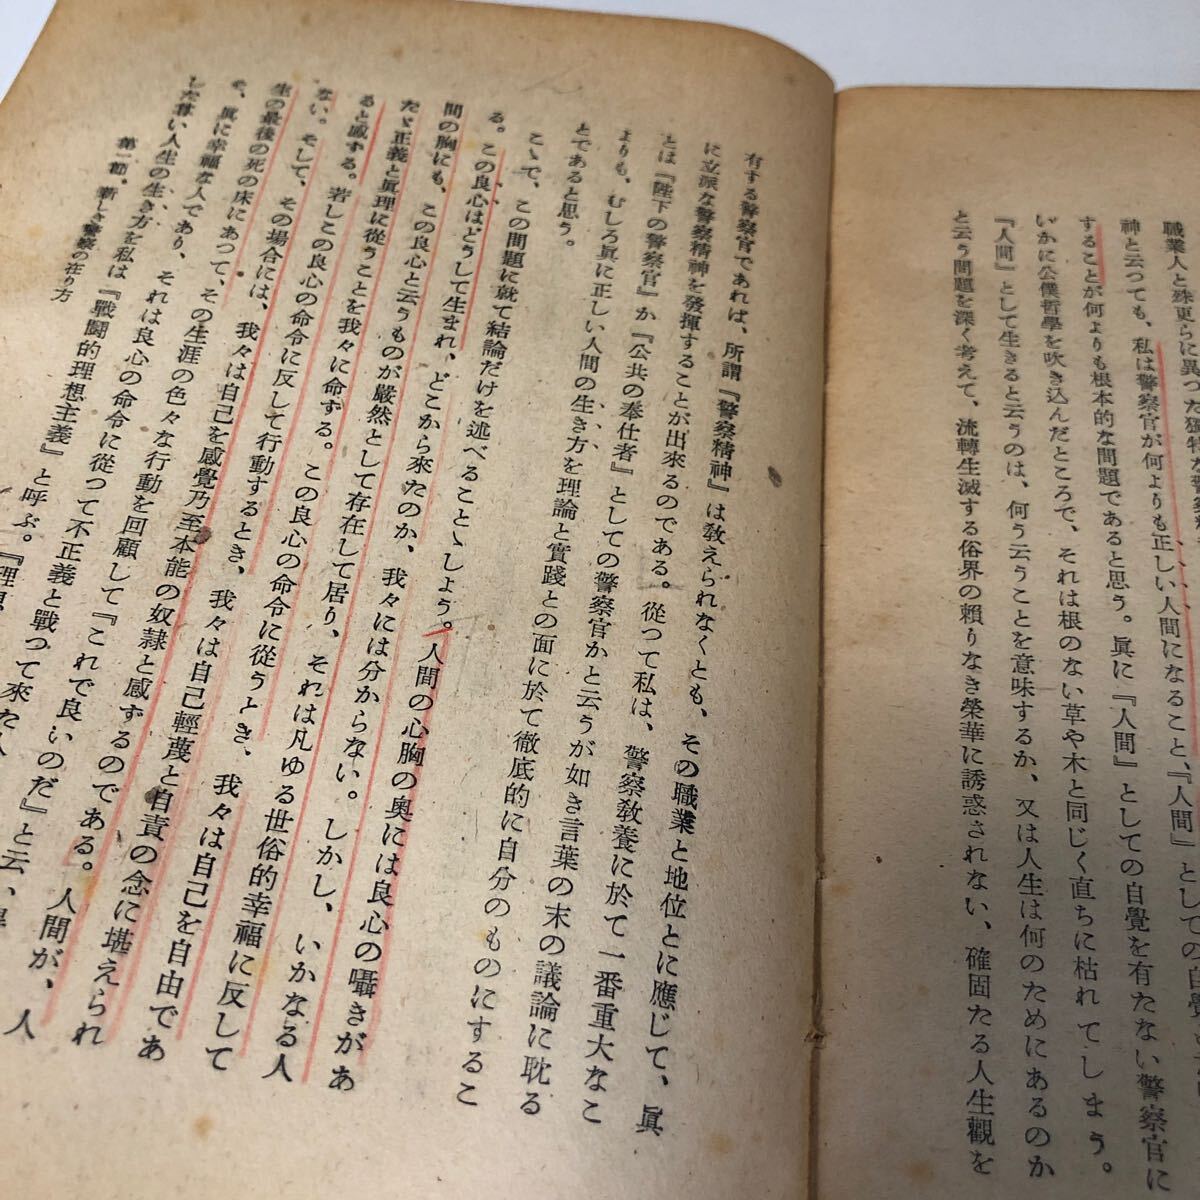 職業人と殊更らに異つた獨特な警察
神と云つても、私は警察官が何よりも正しい人間になること、『人間』としての自覺
することが何よりも根本的な問題であると思う。眞に『人間』としての自覺を有たない警察官に
いかに公僕哲學を吹き込んだところで、それは根のない草や木と同じく直ちに枯れてしまう。
『人間』として生きると云うのは、何う云うことを意味するか、又は人生は何のためにあるのか
と云う問題を深く考えて、流轉生滅する俗界の賴りなき榮華に誘惑されない、確固たる人生觀を
有する警察官であれば、所謂『警察精神』は敎えられなくとも、その職業と地位とに應じて、眞
に立派な警察精神を發揮することが出來るのである。從つて私は、警察敎養に於て一番重大なこ
とは『陛下の警察官』か『公共の奉仕者』としての警察官かと云うが如き言葉の末の議論に耽る
よりも、むしろ眞に正しい人間の生き方を理論と實踐との面に於て徹底的に自分のものにするこ
とであると思う。
こゝで、この問題に就て結論だけを述べることゝしよう。人間の心胸の奥には良心の囁きがあ
る。この良心はどうして生まれ、どこから來たのか、我々には分からない。しかし、いかなる人
間の胸にも、この良心と云うものが嚴然として存在して居り、それは凡ゆる世俗的幸福に反して
たゞ正義と眞理に從うことを我々に命ずる。この良心の命令に從うとき、我々は自己を自由であ
ると感ずる。若しこの良心の命令に反して行動するとき、我々は自己輕蔑と自責の念に堪えられ
ない。そして、その場合には、我々は自己を感覺乃至本能の奴隷と感ずるのである。人間が、人
生の最後の死の床にあつて、その生涯の色々な行動を回顧して『これで良いのだ』と云
そ、眞に幸福な人であり、それは良心の命令に從つて不正義と戰つて來た人
した尊い人生の生き方を私は『戰鬪的理想主義』と呼ぶ。『理想
第一節、新しき警察の在り方